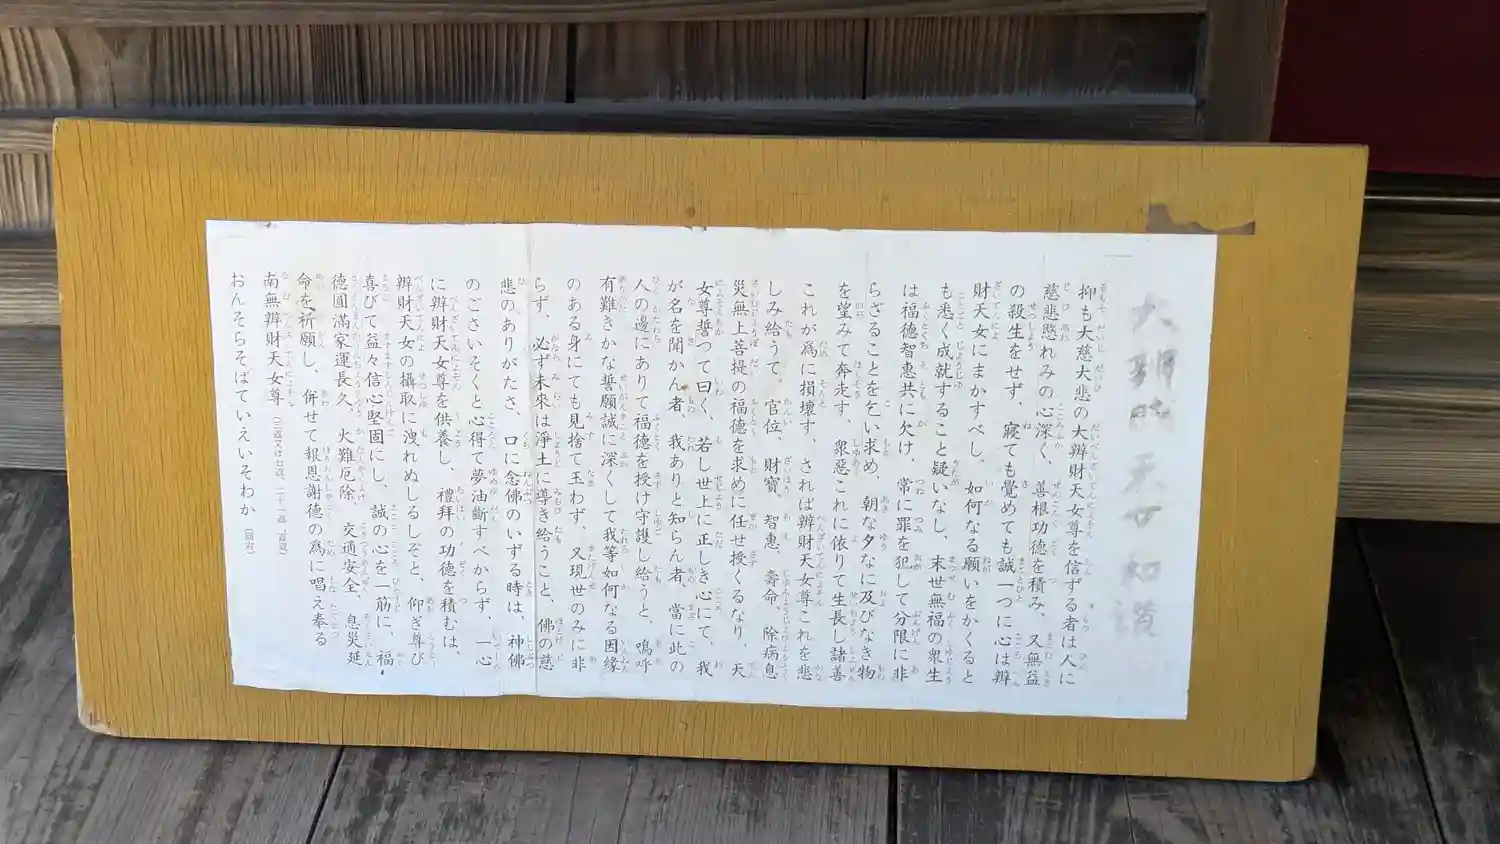 大辨財天女和讃
抑も大慈大悲の大辨財天女尊を信ずる者は人に
慈悲愍れみの心深く、善根功徳を積み、又無益
の殺生をせず、寝ても覚めても誠一つに心は辨
財天女にまかすべし。如何なる願いをかくると
も悉く成就すること疑いなし、末世無福の衆生
は福德智惠共に欠け、常に罪を犯して分限に非
らざることをを乞い求め、朝な夕なに及びなき物
を望みて奔走す、衆惡これに依りて生長し諸善
これが爲に損壞す、されば辨財天女尊これを悲
しみ給うて。官位、財寶、智惠、壽命、除病息
災無上菩提の福德を求めに任せ授くるなり、天
女尊誓つて曰く、若し世上に正しき心にて、我
が名を聞かん者、我ありと知らん者、當に此の
人の邊にありて福德を授け守護し給うと、嗚呼
有難きかな誓願誠に深くして我等如何なる因緣
のある身にても見捨て玉わず、又現世のみに非
らず、必ず未來は淨土に導き給うこと、佛の慈
悲のありがたさ、口に念佛のいずる時は、神佛
のごさいそくと心得て夢油斷すべからず、一心
に辨財天女尊を供養し、禮拜の功德を積むは、
辨財天女の攝取に洩れぬしるしぞと、仰ぎ尊び
喜びて益々信心堅固にし、誠の心を一筋に、福
德圓滿家運長久、火難厄除、交通安全、息災延
命を祈願し、併せて報恩謝德の爲に唱え奉る
南無辨財天女尊（三返又は七返、二十一返、百返）
おんそらそばていえいそわか（同右）